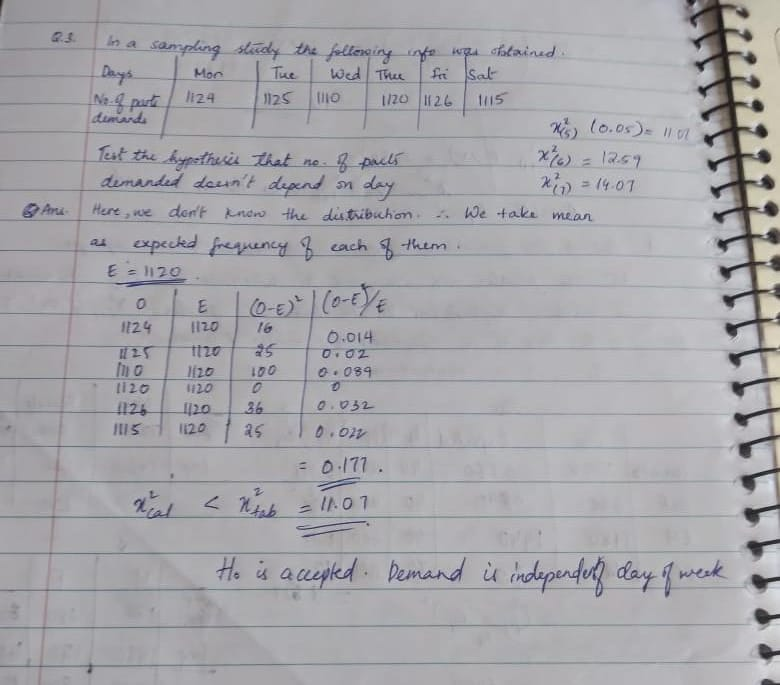 Q.3. In a sampling study the following info was obtained.
Days Mon Tue Wed Thu Fri Sat
No. of parts demands 1124 1125 1110 1120 1126 1115
χ²(5) (0.05) = 11.07
Test the hypothesis that no. of parts χ²(6) = 12.59
demanded doesn't depend on day χ²(7) = 14.07
Ans. Here, we don't know the distribution. ∴ We take mean
as expected frequency of each of them.
E = 1120
O E (O-E)² (O-E)²/E
1124 1120 16 0.014
1125 1120 25 0.02
1110 1120 100 0.089
1120 1120 0 0
1126 1120 36 0.032
1115 1120 25 0.022
= 0.177.
χ²cal < χ²tab = 11.07
H₀ is accepted. Demand is independent of day of week